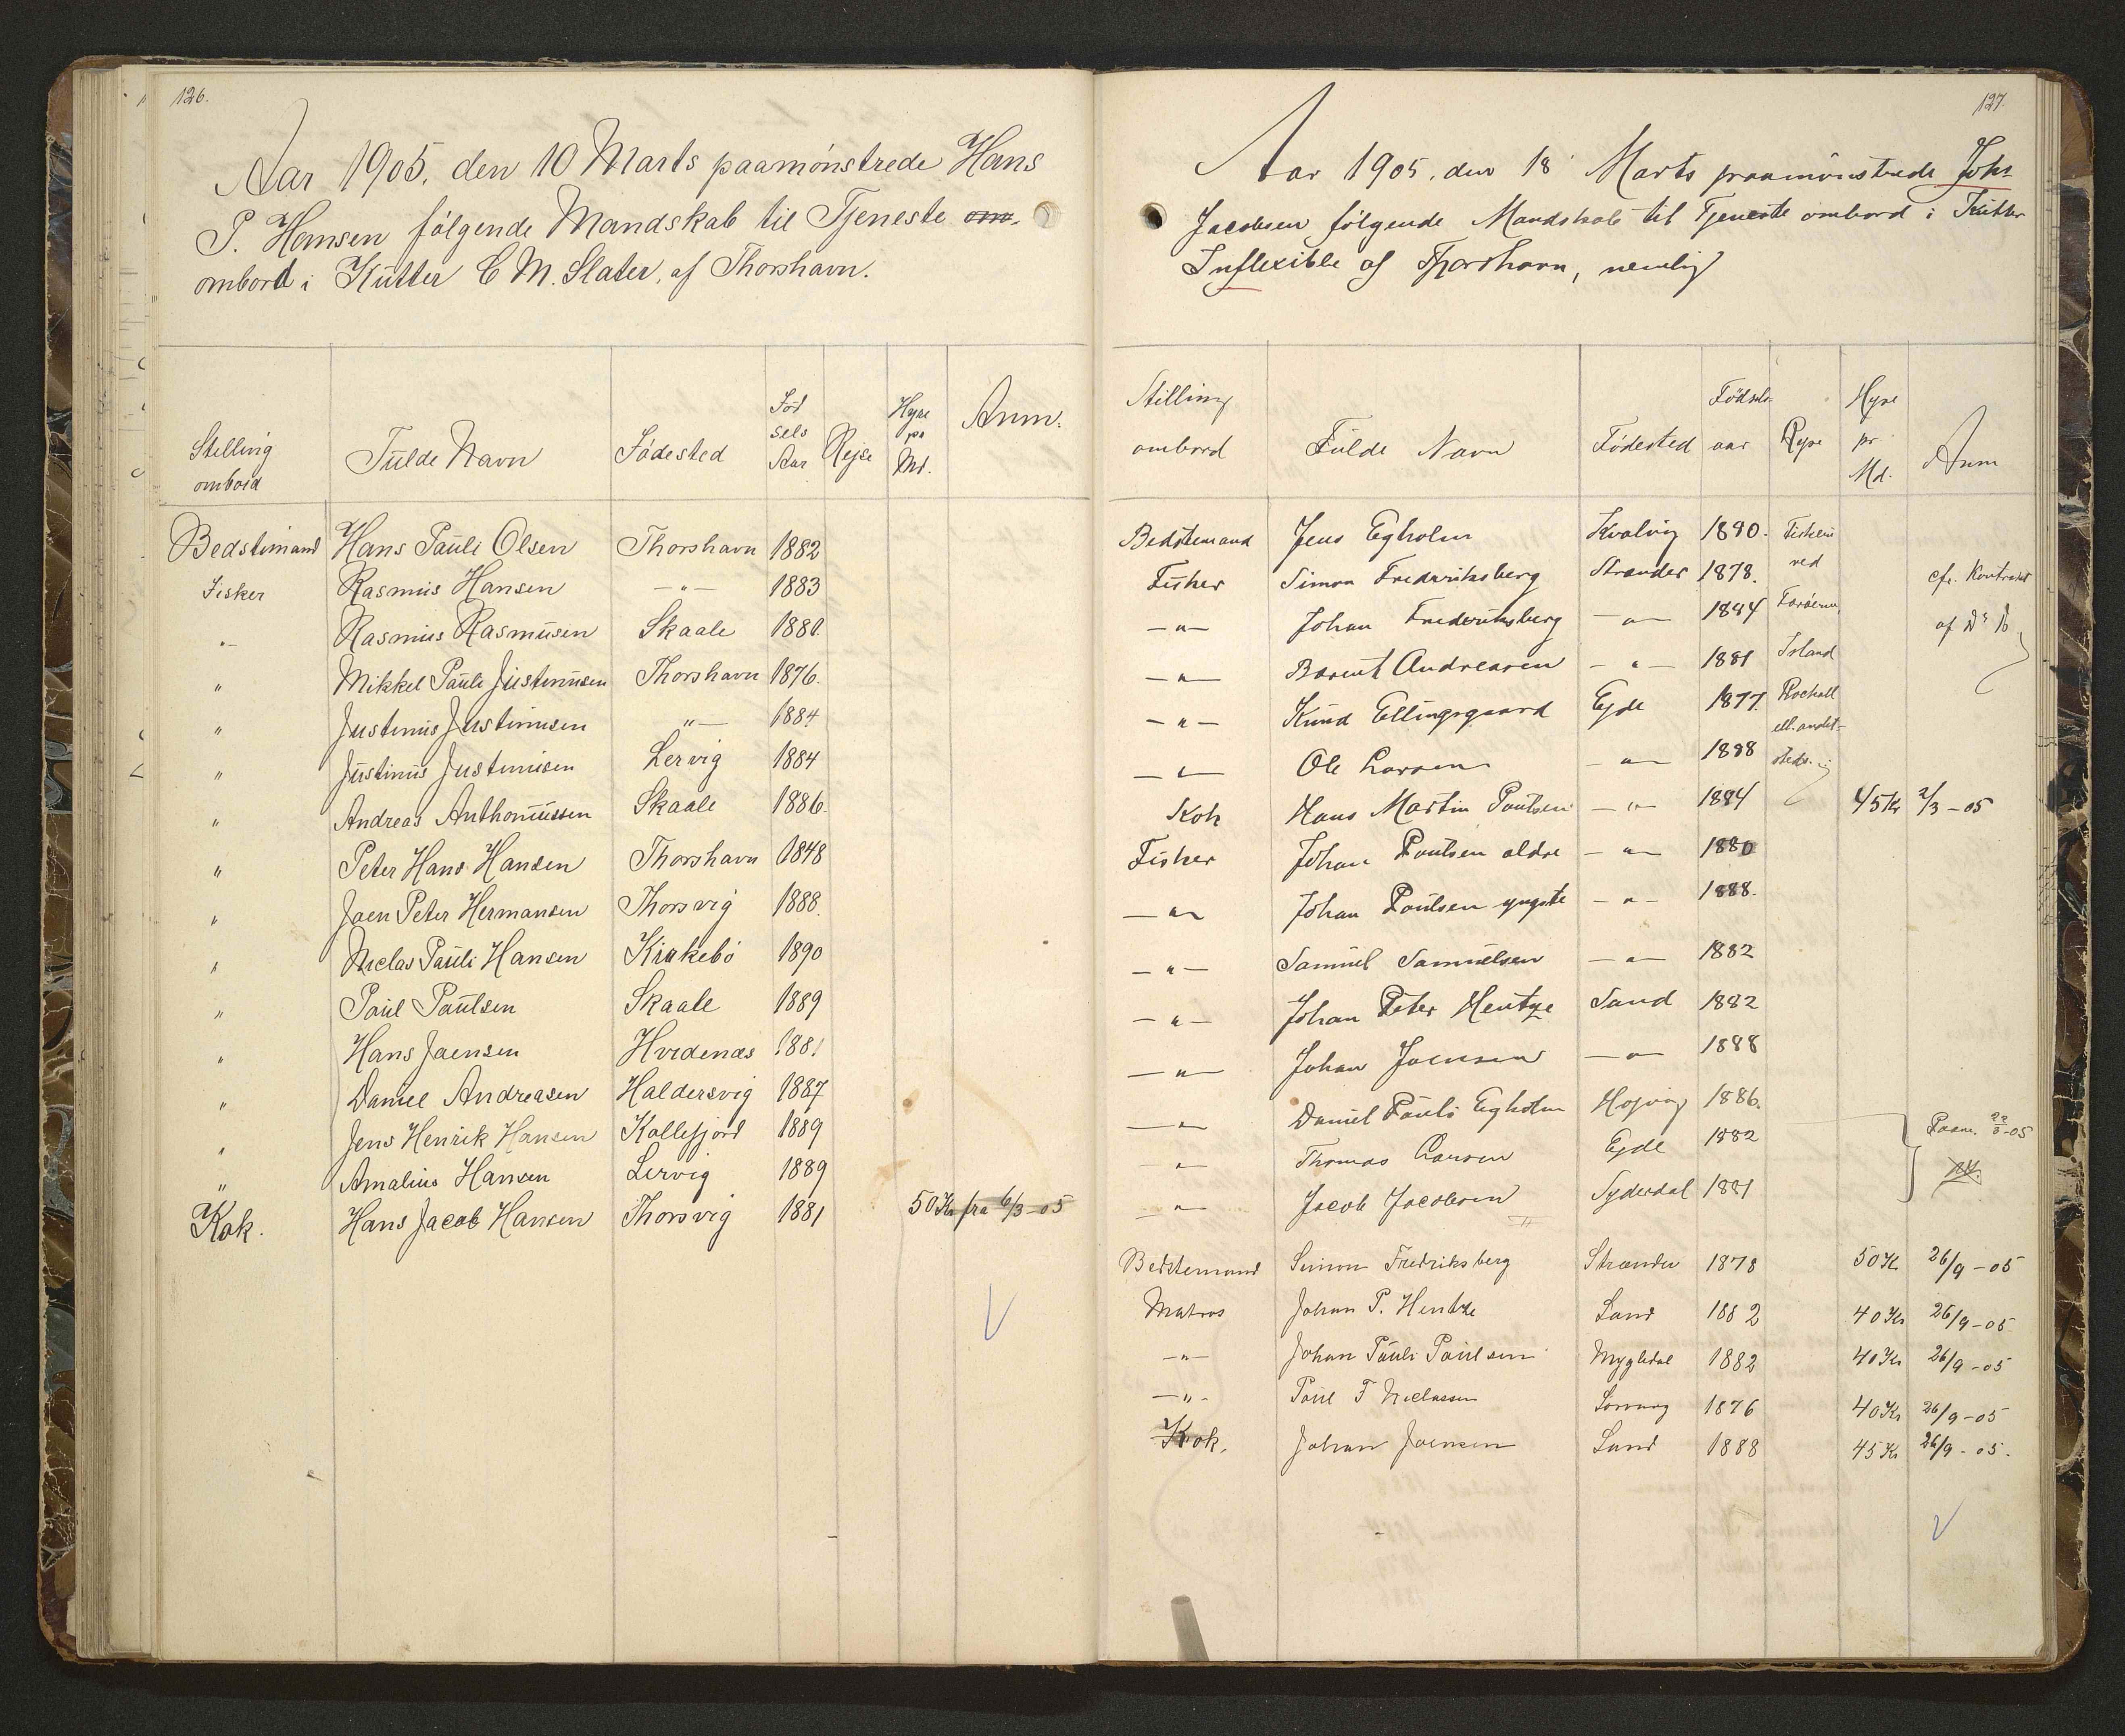 126.
Aar 1905, den 10 Marts paamönstrede Hans
P. Hansen fölgende Mandskab til Tjeneste om-
ombord i Kutter C M. Slater, af Thorshavn.
Stilling ombord Fulde Navn Födested Föd sels Aar Rejse Hyre pr Md. Anm.
Bedstemand Hans Pauli Olsen Thorshavn 1882
Fisker Rasmus Hansen -"- 1883
"- Rasmus Rasmusen Skaale 1881.
" Mikkel Pauli Justinusen Thorshavn 1876.
" Justinus Justinusen "- 1884
" Justinus Justinusen Lervig 1884
" Andreas Anthoniussen Skaale 1886.
" Peter Hans Hansen Thorshavn 1848
" Joen Peter Hermansen Thorsvig 1888.
" Niclas Pauli Hansen Kirkebö 1890
" Paul Paulsen Skaale 1889
" Hans Joensen Hvidenæs 1881
" Daniel Andreasen Haldersvig 1887
" Jens Henrik Hansen Kollefjord 1889
" Amalius Hansen Lervig 1889
Kok. Hans Jacob Hansen Thorsvig 1881 50 Kr fra 6/3-05
127.
Aar 1905, den 18 Marts paamönstrede Johs
Jacobsen fölgende Mandskab til Tjeneste ombord i Kutter
Inflexible af Thorshavn, nemlig
Stilling ombord Fulde Navn Födested Födsels aar Rejse Hyre pr Md. Anm
Bedstemand Jens Egholm Kvalvig 1880. Fiskeri
Fisker Simon Fredriksberg Strænder 1878. ved cfr. Kontrakt
-"- Johan Frederiksberg -"- 1884 Færöerne, af D. D.
-"- Barent Andreasen -"- 1881 Island
-"- Knud Ellingsgaard Ejde 1877. Rockall
ell. andet-
-"- Ole Larsen -"- 1888 steds.
Kok Hans Martin Poulsen -"- 1884 45 Kr 2/3-05
Fisker Johan Poulsen ældre -"- 1880
-"- Johan Poulsen yngste -"- 1888.
-"- Samuel Samuelsen -"- 1882
-"- Johan Peter Hentze Sand 1882
-"- Johan Joensen -"- 1888
-"- Daniel Pauli Egholm Hojvig 1886.
-"- Thomas Larsen Ejde 1882 Paam. 22/3-05
-"- Jacob Jacobsen Syderdal 1881
Bedstemand Simon Fredriksberg Strænder 1878 50 Kr 26/9-05
Matros Johan P. Hentze Sand 1882 40 Kr 26/9-05
-"- Johan Pauli Paulsen Mygledal 1882 40 Kr 26/9-05
-"- Paul F Niclassen Sörvaag 1876 40 Kr 26/9-05
Kok. Johan Joensen Sand 1888 45 Kr 26/9-05.